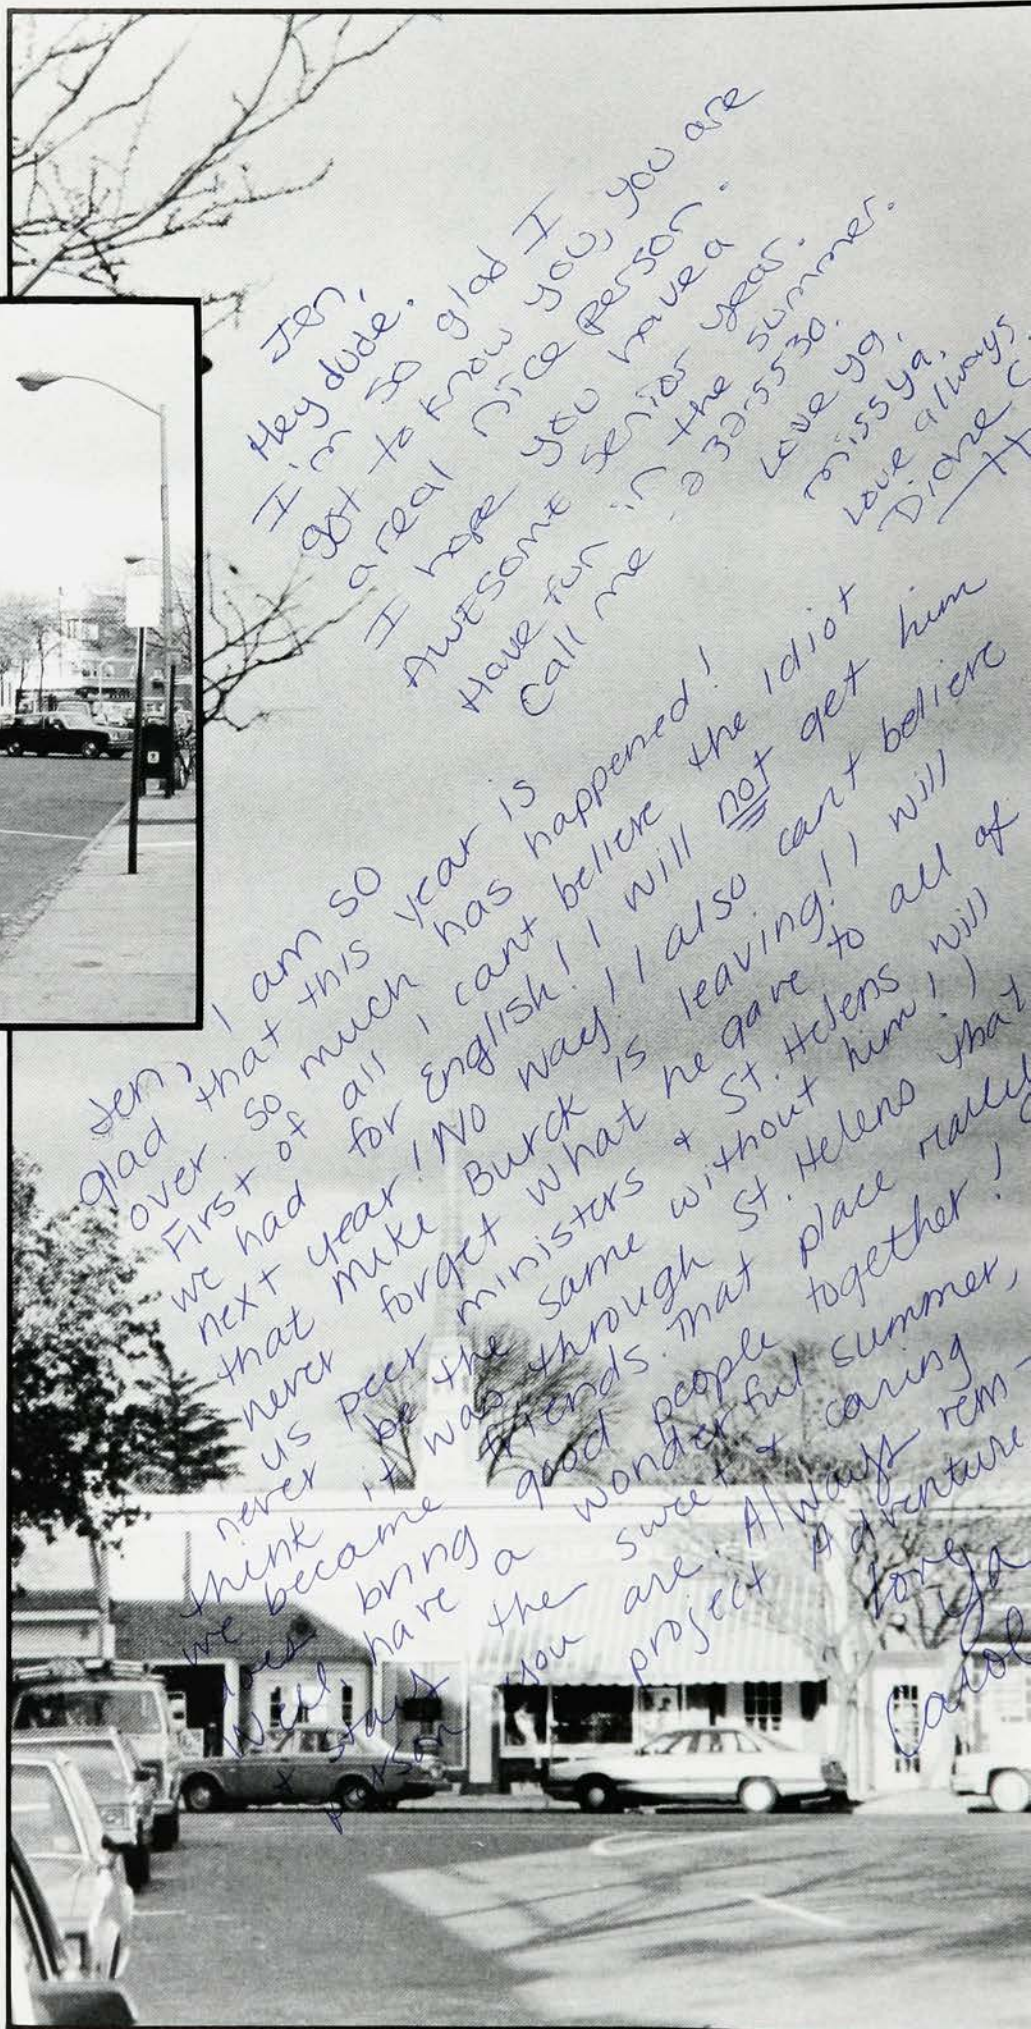 Jen,
Hey dude.
I'm so glad I
got to know you, you are
a real nice person.
I hope you have a
AWESOME senior year.
Have fun in the summer.
Call me 232-5530.
Love ya,
miss ya,
Love always,
Diane C.
Jen, I am so
glad that this year is
over. So much has happened!
First of all I cant believe the idiot
we had for English! I will not get him
next year! No way! I also cant believe
that Mike Burck is leaving! I will
never forget what he gave to all of
us peer ministers & St. Helens will
never be the same without him! I
think it was through St. Helens that
we became friends. That place really
does bring good people together!
Well, have a wonderful summer,
& stay the sweet & caring
person you are. Always rem-
project Adventure
Love
ya
Carol